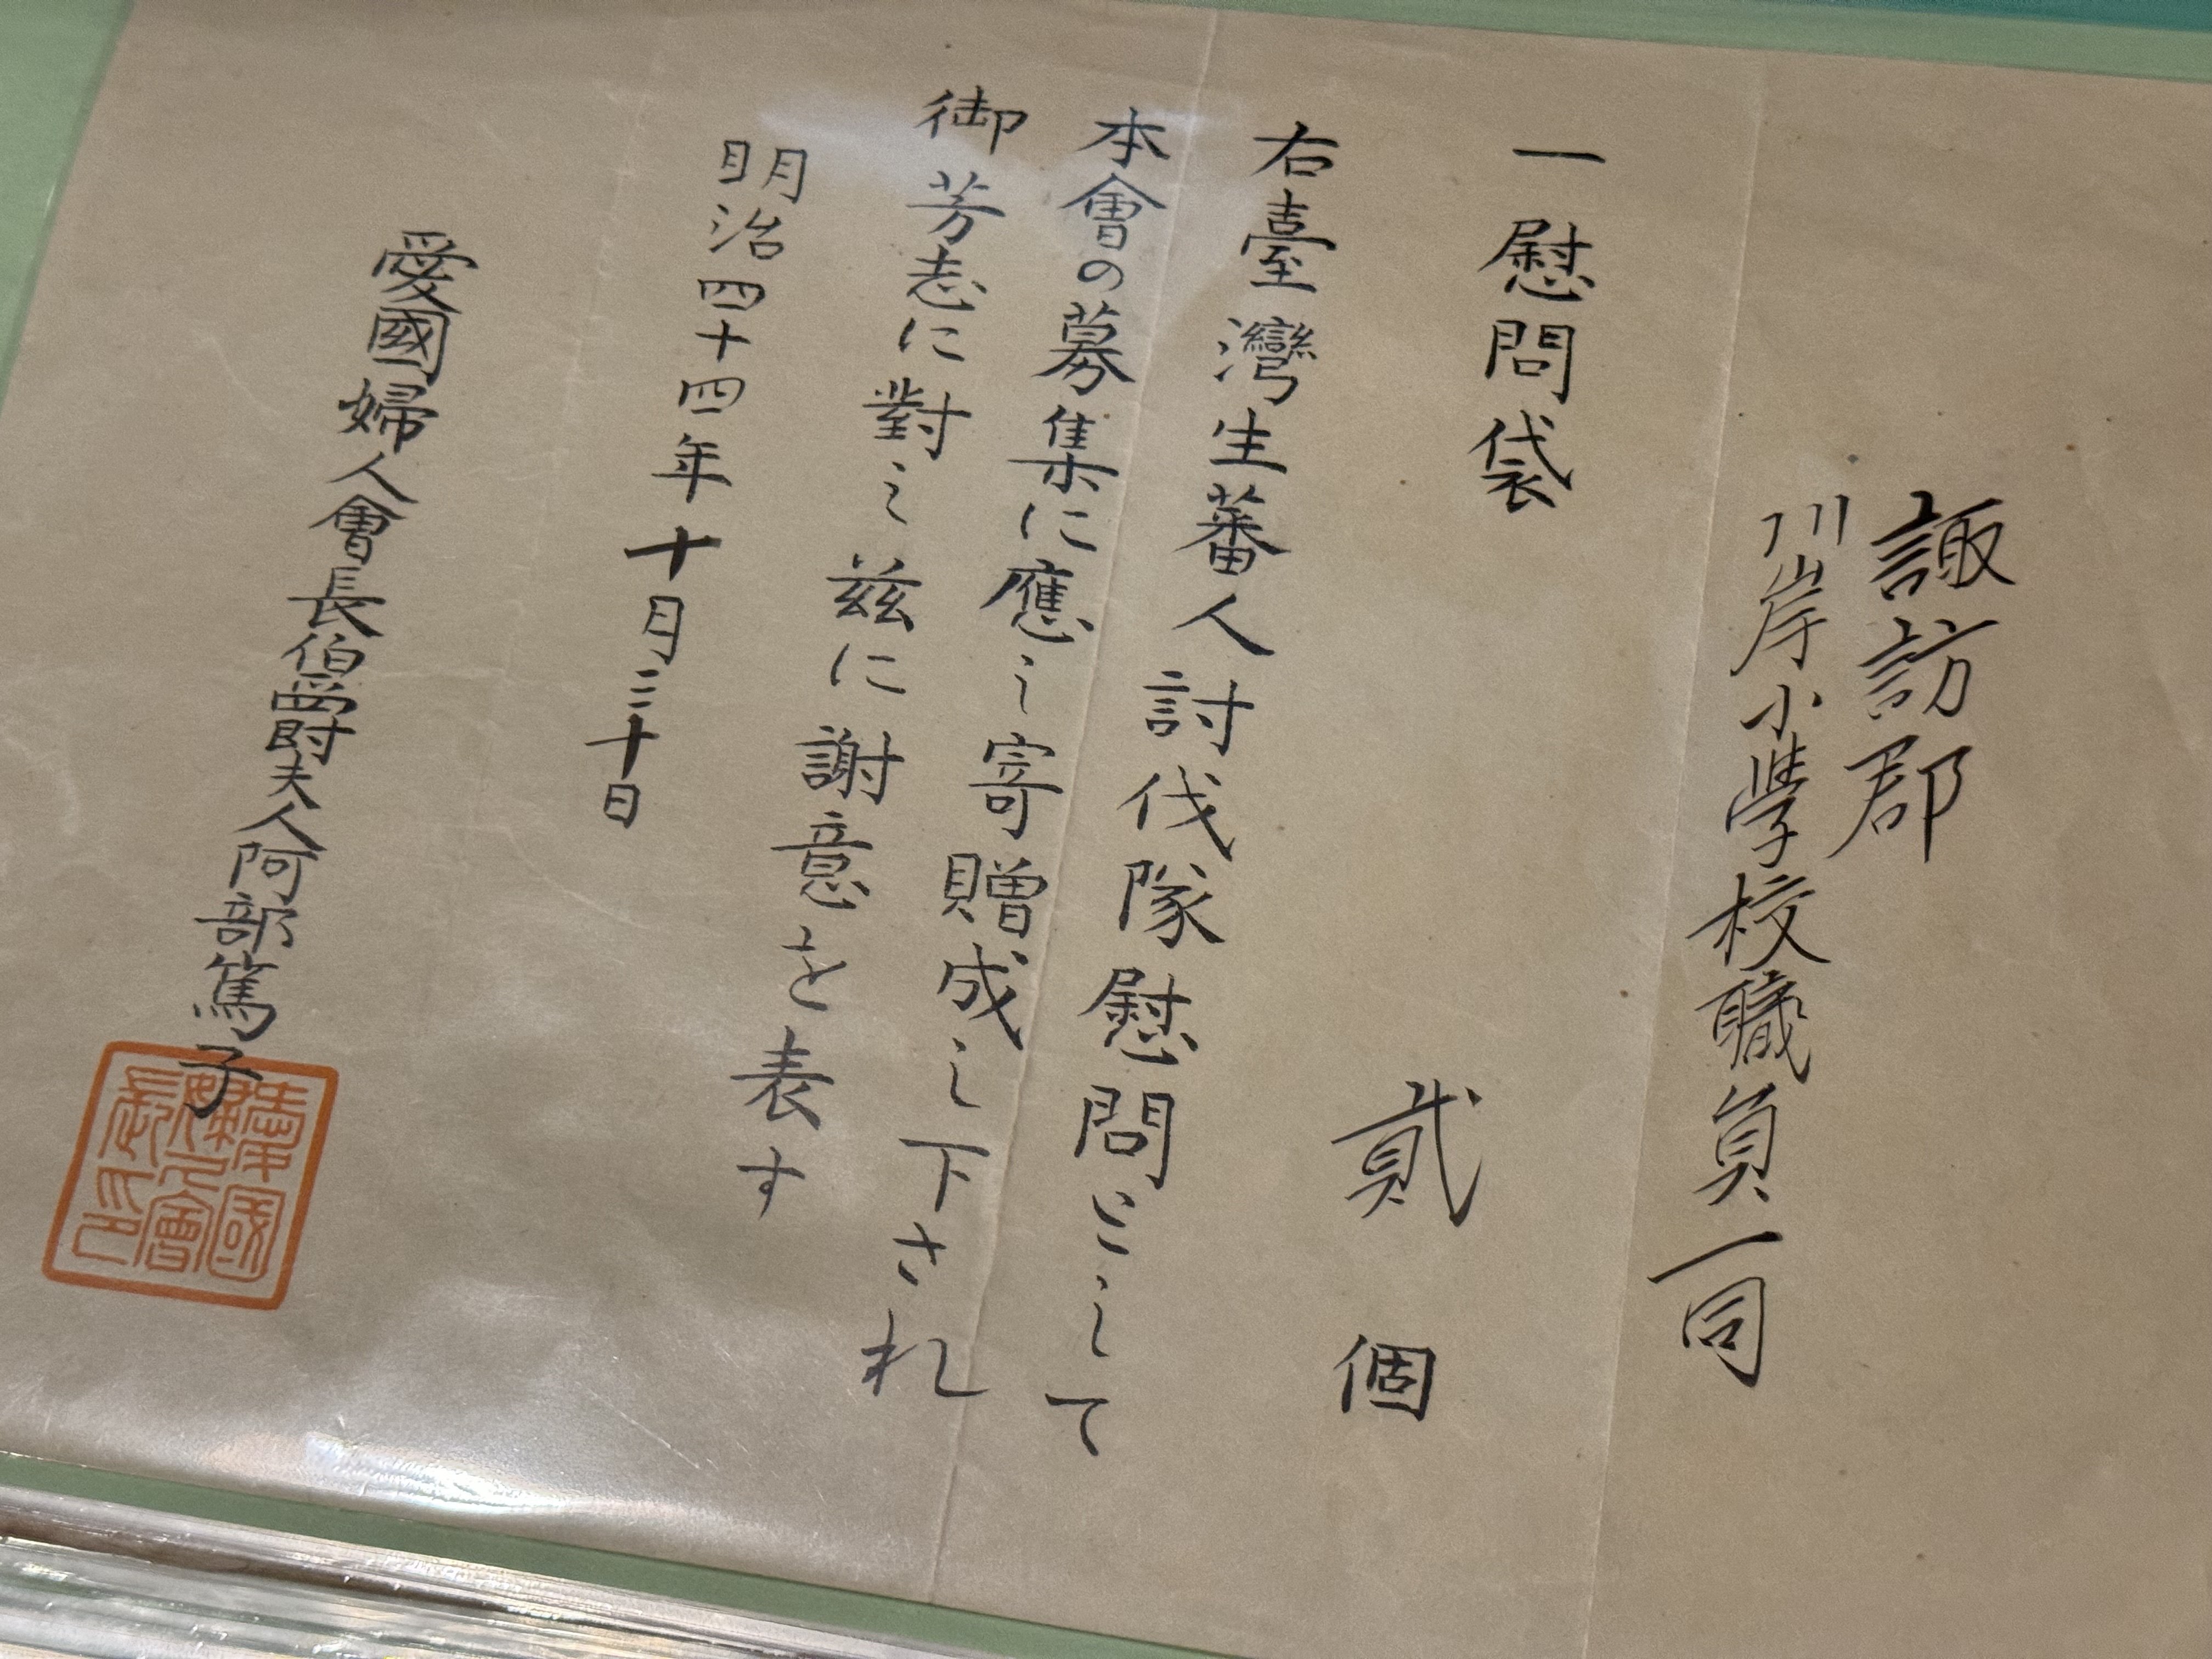 諏訪郡
川岸小學校職員一同
一慰問袋
貳個
右臺灣生蕃人討伐隊慰問として
本會の募集に應し寄贈成し下され
御芳志に對し茲に謝意を表す
明治四十四年十月三十日
愛國婦人會長伯爵夫人阿部篤子
愛國婦人會長印